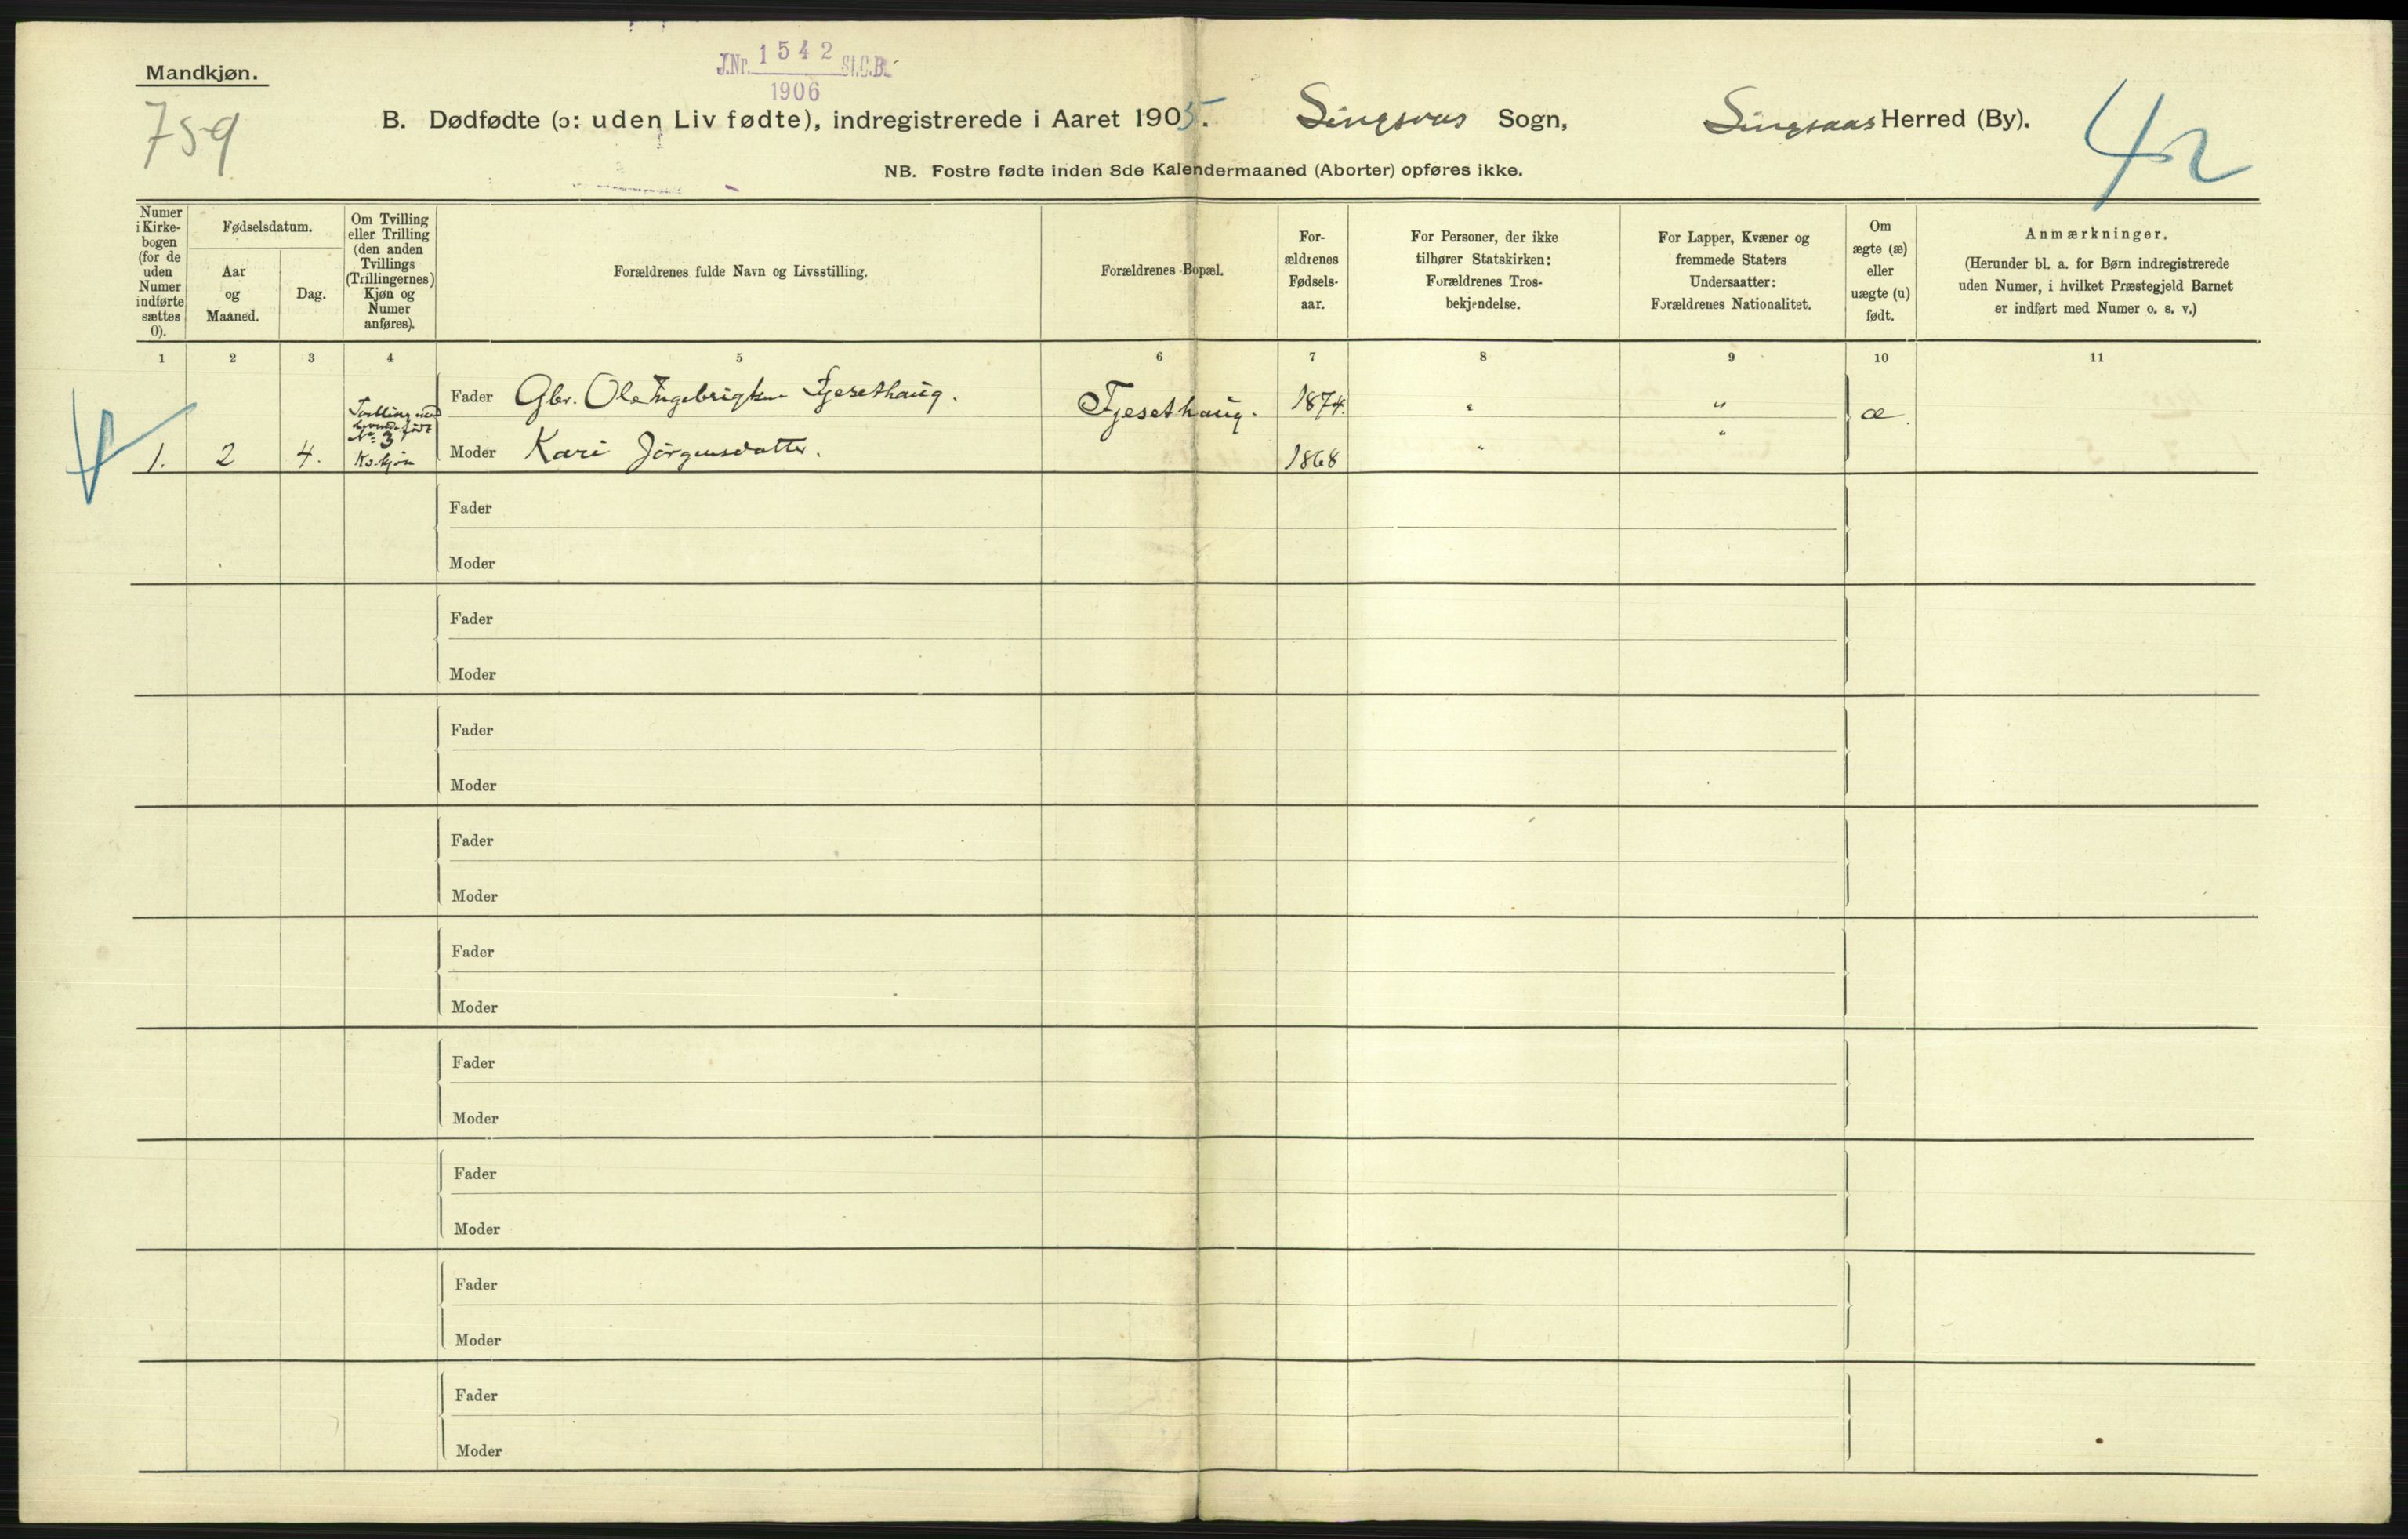 Mandkjøn.
J.Nr. 1542 St.C.B.
1906
759
B. Dødfødte (ɔ: uden Liv fødte), indregistrerede i Aaret 1905. Singsaas Sogn, Singsaas Herred (By).
42
NB. Fostre fødte inden 8de Kalendermaaned (Aborter) opføres ikke.
Numer i Kirke-bogen (for de uden Numer indførte sættes 0).
Fødselsdatum.
Aar og Maaned.
Dag.
Om Tvilling eller Trilling (den anden Tvillings (Trillingernes) Kjøn og Numer anføres).
Forældrenes fulde Navn og Livsstilling.
Forældrenes Bopæl.
For-ældrenes Fødsels-aar.
For Personer, der ikke tilhører Statskirken: Forældrenes Tros-bekjendelse.
For Lapper, Kvæner og fremmede Staters Undersaatter: Forældrenes Nationalitet.
Om ægte (æ) eller uægte (u) født.
Anmærkninger.
(Herunder bl. a. for Børn indregistrerede uden Numer, i hvilket Præstegjeld Barnet er indført med Numer o. s. v.)
1 2 3 4 5 6 7 8 9 10 11
Fader Gbr. Ole Ingebrigtsen Fjesethaug. Fjesethaug. 1874. " " æ.
Tvilling med
levende født
No 3
Kv.kjøn
1. 2 4. Moder Kari Jörgensdatter. 1868 " "
Fader
Moder
Fader
Moder
Fader
Moder
Fader
Moder
Fader
Moder
Fader
Moder
Fader
Moder
Fader
Moder
Fader
Moder